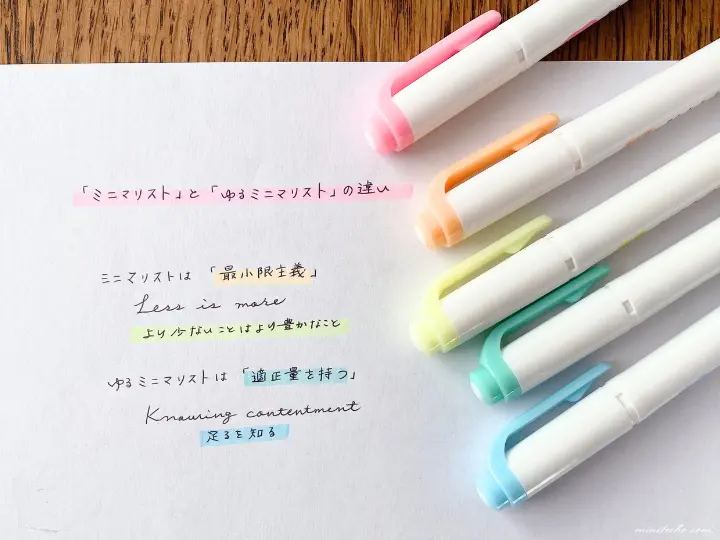 「ミニマリスト」と「ゆるミニマリスト」の違い
ミニマリストは「最小限主義」
Less is more
より少ないことはより豊かなこと
ゆるミニマリストは「適正量を持つ」
Knowing contentment
足るを知る